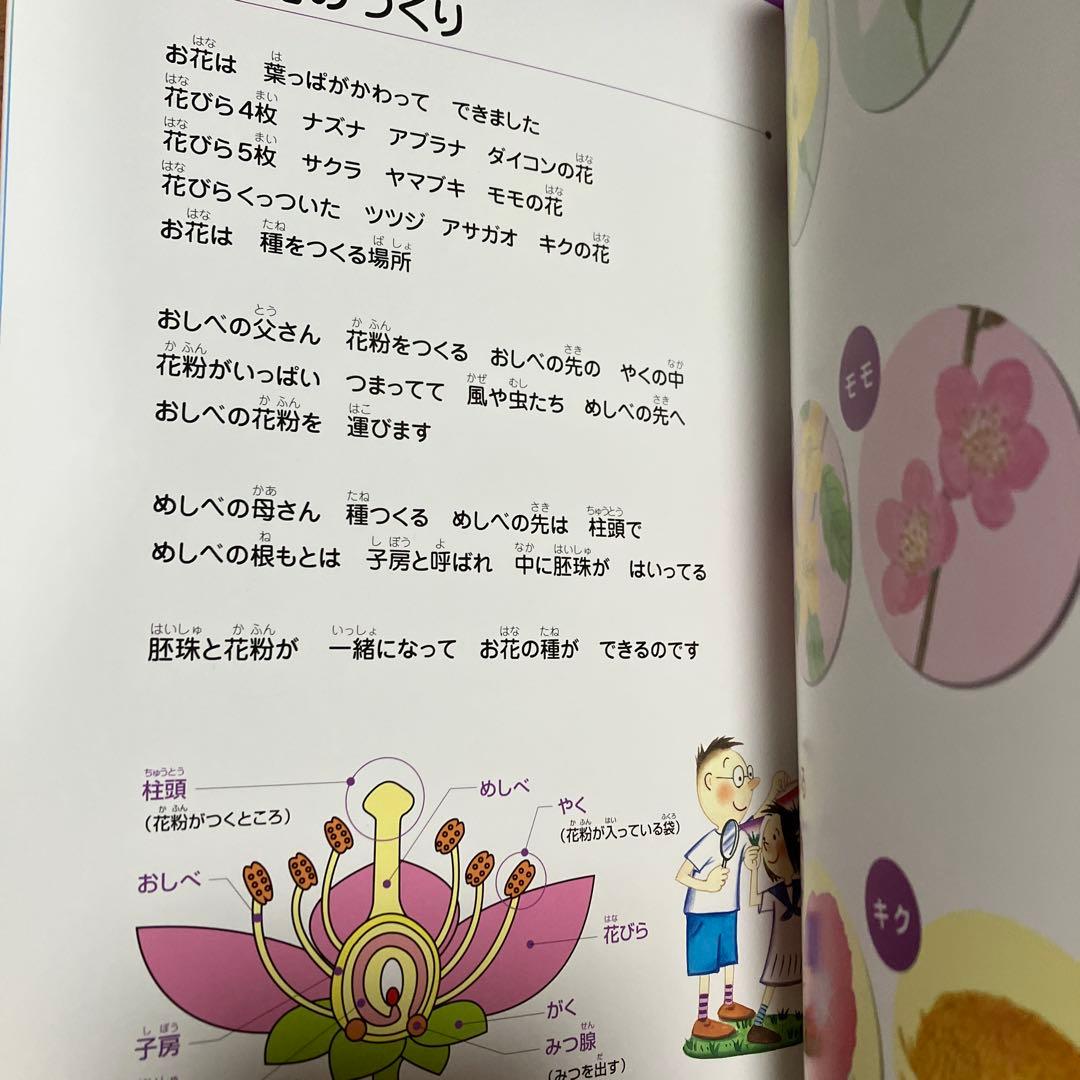 つくり
お花は　葉っぱがかわって　できました
花びら4枚　ナズナ　アブラナ　ダイコンの花
花びら5枚　サクラ　ヤマブキ　モモの花
花びらくっついた　ツツジ　アサガオ　キクの花
お花は　種をつくる場所
おしべの父さん　花粉をつくる　おしべの先の　やくの中
花粉がいっぱい　つまってて　風や虫たち　めしべの先へ
おしべの花粉を　運びます
めしべの母さん　種つくる　めしべの先は　柱頭で
めしべの根もとは　子房と呼ばれ　中に胚珠が　はいってる
胚珠と花粉が　一緒になって　お花の種が　できるのです
柱頭
(花粉がつくところ)
めしべ
やく
(花粉が入っている袋)
おしべ
花びら
がく
子房
みつ腺
(みつを出す)
モモ
キク